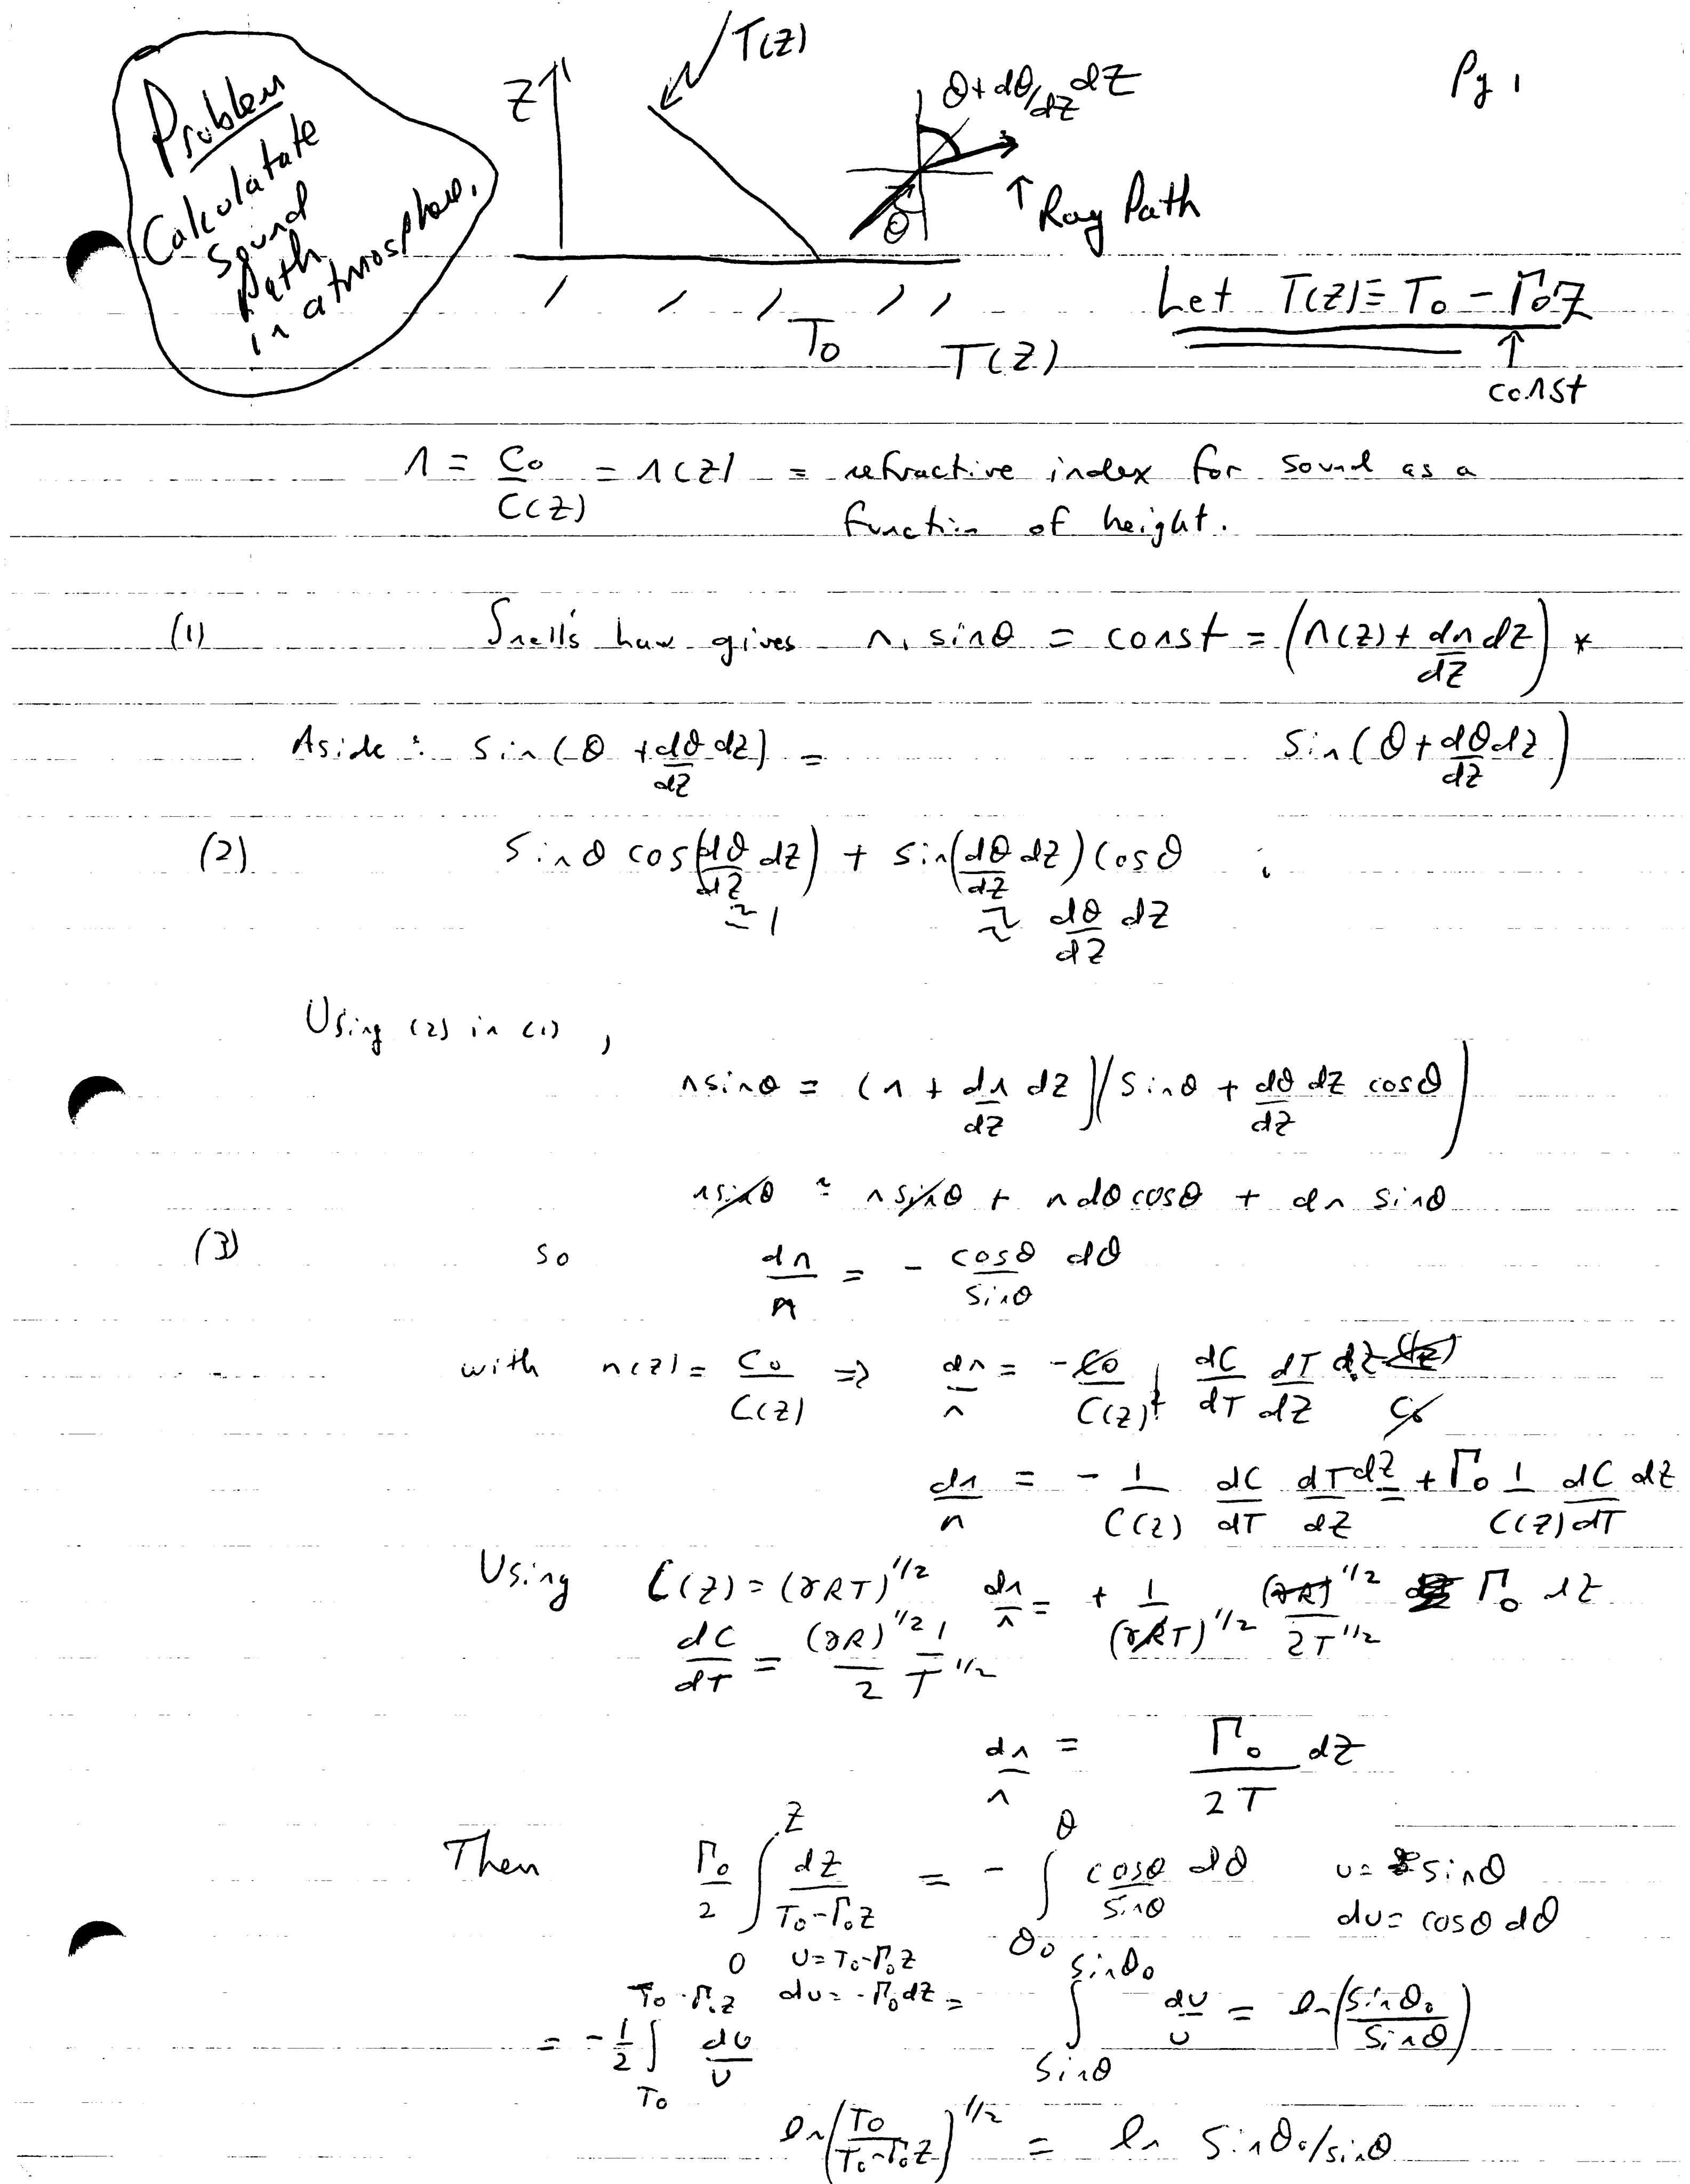 Problem
Calculatate
Sound
Path
in atmosphere.
Z
T(Z)
θ + dθ/dZ dZ
θ
↑ Ray Path
Pg 1
T0
T(Z)
Let T(Z) ≡ T0 - Γ0 Z
↑
const
n = C0/C(Z) = n(Z) = refractive index for sound as a
function of height.
(1) Snell's Law gives n, sinθ = const = (n(Z) + dn/dZ dZ) *
Aside: sin(θ + dθ/dZ dZ) = sin(θ + dθ/dZ dZ)
(2) sinθ cos(dθ/dZ dZ) + sin(dθ/dZ dZ) cosθ
≃ 1 ≈ dθ/dZ dZ
Using (2) in (1),
n sinθ = (n + dn/dZ dZ)(sinθ + dθ/dZ dZ cosθ)
n sinθ ≃ n sinθ + n dθ cosθ + dn sinθ
(3) so dn/n = - cosθ/sinθ dθ
with n(Z) = C0/C(Z) ⇒ dn/n = - C0/C(Z)² dC/dT dT/dZ dZ C(Z)/C0
dn/n = - 1/C(Z) dC/dT dT/dZ dZ = + Γ0 1/C(Z) dC/dT dZ
Using C(Z) = (γRT)^1/2 dn/n = + 1/(γRT)^1/2 (γR)^1/2/2T^1/2 Γ0 dZ
dC/dT = (γR)^1/2/2 1/T^1/2
dn/n = Γ0/2T dZ
Then Γ0/2 ∫_0^Z dZ/(T0-Γ0Z) = - ∫_θ0^θ cosθ/sinθ dθ u = sinθ
du = cosθ dθ
u = T0-Γ0Z
du = -Γ0dZ
= -1/2 ∫_T0^(T0-Γ0Z) du/u = ∫_sinθ^sinθ0 du/u = ln(sinθ0/sinθ)
ln(T0/(T0-Γ0Z))^1/2 = ln sinθ0/sinθ